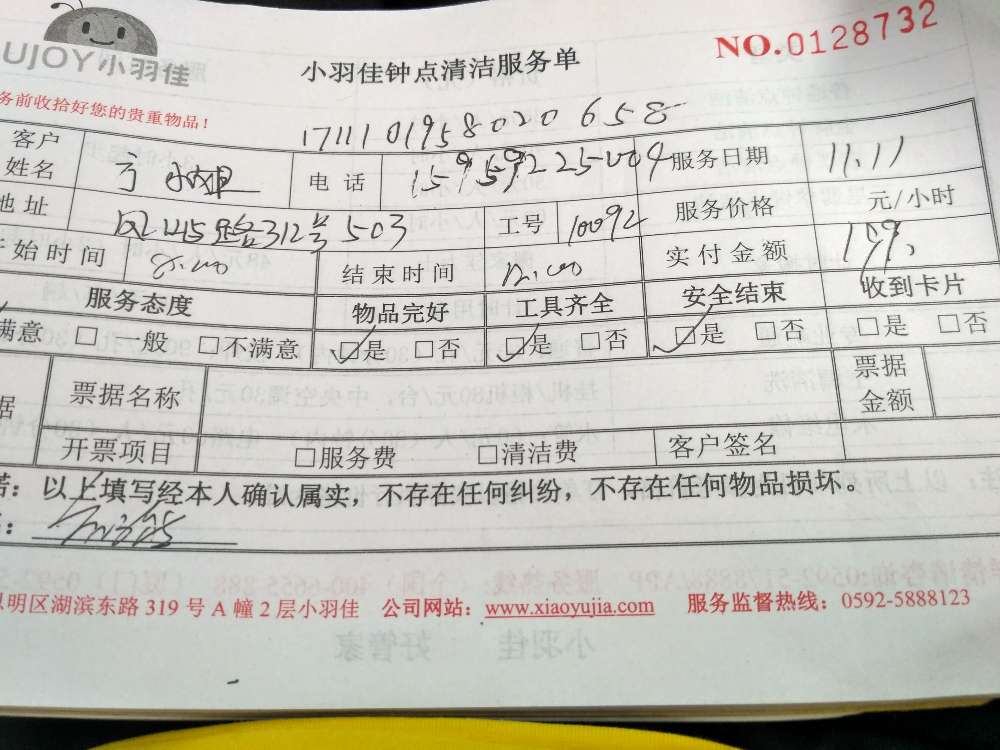 UJOY小羽佳
小羽佳钟点清洁服务单
NO.0128732
务前收拾好您的贵重物品！
17111101958020658
客户姓名 小姐 电话 15959225009 服务日期 11.11
地址 312号503 工号 10092 服务价格 元/小时
开始时间 8:00 结束时间 12:00 实付金额
服务态度 物品完好 工具齐全 安全结束 收到卡片
满意 □ 一般 □不满意 是 □否 是 □否 是 □否 □是 □否
据 票据名称 票据金额
开票项目 □服务费 □清洁费 客户签名
诺：以上填写经本人确认属实，不存在任何纠纷，不存在任何物品损坏。
思明区湖滨东路 319 号 A 幢 2 层小羽佳 公司网站：www.xiaoyujia.com 服务监督热线：0592-5888123